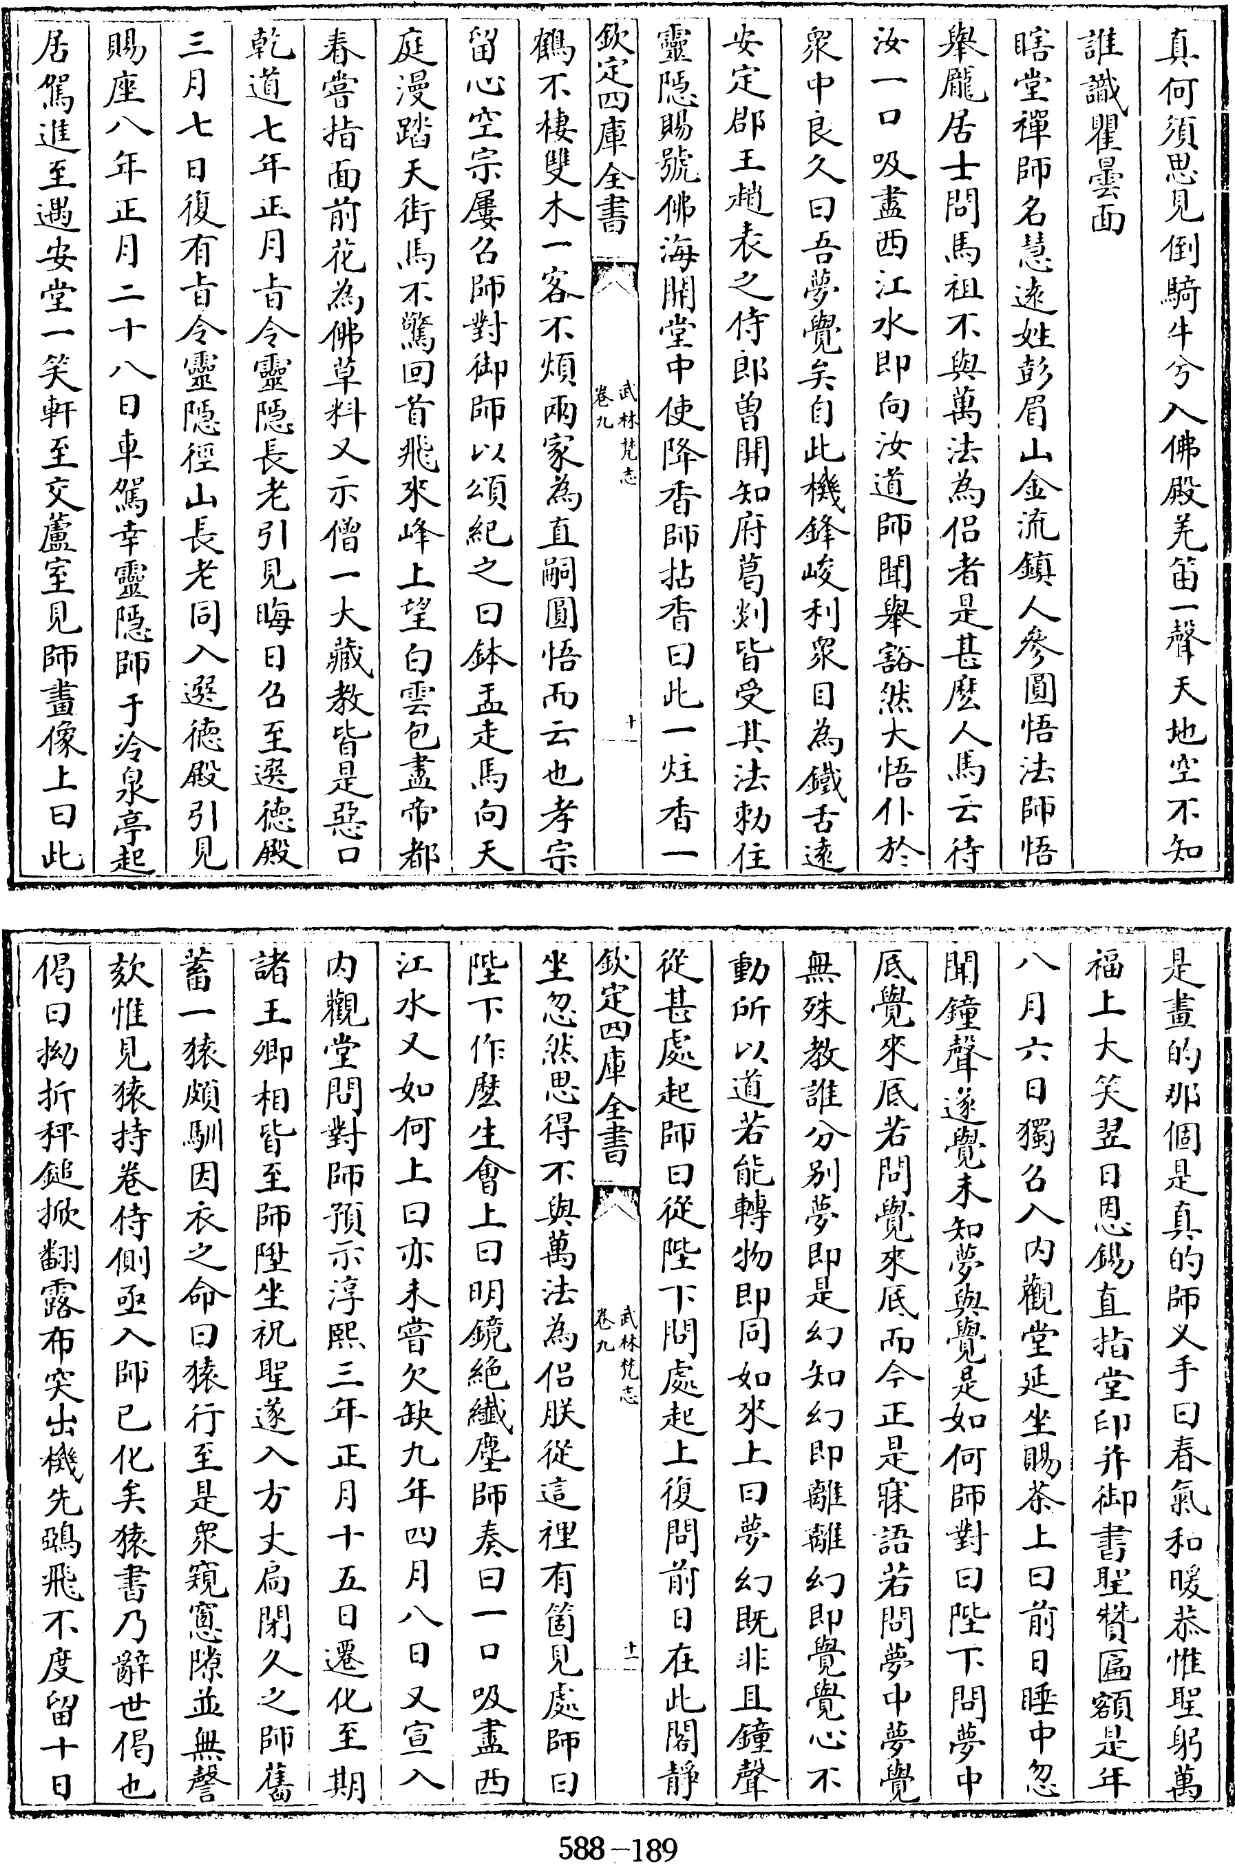 真何須思見倒騎牛兮入佛殿羌笛一聲天地空不知
誰識瞿曇面
瞎堂禪師名慧遠姓彭眉山金流鎮人參圓悟法師悟
舉龐居士問馬祖不與萬法為侶者是甚麽人馬云待
汝一口吸盡西江水即向汝道師聞舉豁然大悟仆於
衆中良久曰吾夢覺矣自此機鋒峻利衆目為鐵舌遠
安定郡王趙表之侍郎曽開知府葛剡皆受其法勅住
靈隱賜號佛海開堂中使降香師拈香曰此一炷香一
欽定四庫全書
武林梵志
卷九
十
鶴不棲雙木一客不煩兩家為直嗣圓悟而云也孝宗
留心空宗屢召師對御師以頌紀之曰鉢盂走馬向天
庭漫踏天街馬不驚回首飛來峰上望白雲包盡帝都
春嘗指面前花為佛草料又示僧一大藏教皆是惡口
乾道七年正月旨令靈隱長老引見晦日召至選德殿
三月七日復有旨令靈隱徑山長老同入選德殿引見
賜座八年正月二十八日車駕幸靈隱師于冷泉亭起
居駕進至遇安堂一笑軒至交蘆室見師畫像上曰此
是畫的那個是真的師义手曰春氣和暖恭惟聖躬萬
福上大笑翌日恩錫直指堂印并御書聖贊匾額是年
八月六日獨召入内觀堂延坐賜茶上曰前日睡中忽
聞鐘聲遂覺未知夢與覺是如何師對曰陛下問夢中
底覺來底若問覺來底而今正是寐語若問夢中夢覺
無殊教誰分别夢即是幻知幻即離離幻即覺覺心不
動所以道若能轉物即同如來上曰夢幻既非且鐘聲
從甚處起師曰從陛下問處起上復問前日在此閣靜
欽定四庫全書
武林梵志
卷九
十一
坐忽然思得不與萬法為侶朕從這裡有箇見處師曰
陛下作麽生會上曰明鏡絶纖塵師奏曰一口吸盡西
江水又如何上曰亦未嘗欠缺九年四月八日又宣入
内觀堂問對師預示淳熙三年正月十五日遷化至期
諸王卿相皆至師陞坐祝聖遂入方丈扃閉久之師舊
蓄一猿頗馴因衣之命曰猿行至是衆窺窻隙並無謦
欬惟見猿持卷侍側亟入師已化矣猿書乃辭世偈也
偈曰拗折秤鎚掀翻露布突出機先鵶飛不度留十日
588-189